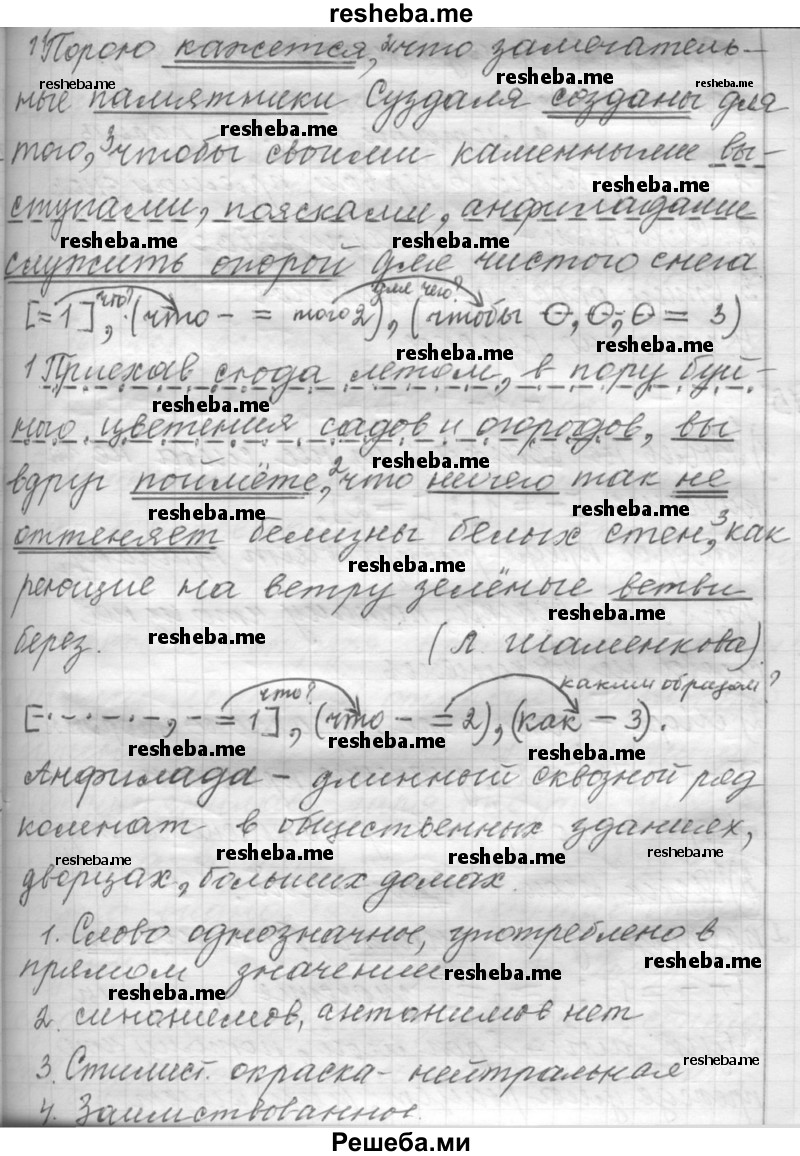 resheba.me
1 Порою кажется, 2 что замечатель-
ные памятники Суздаля созданы для
того, 3 чтобы своими каменными вы-
ступами, поясками, анфиладами
служить опорой для чистого снега
что? для чего?
[= 1], (что - = того 2), (чтобы О, О, О = 3)
1 Приехав сюда летом, в пору буй-
ного цветения садов и огородов, вы
вдруг поймёте, 2 что ничего так не
оттеняет белизны белых стен, 3 как
реющие на ветру зелёные ветви
берез. (Л. Шаменкова).
что? каким образом?
[-·-·-·-, - = 1], (что - = 2), (как - 3).
Анфилада - длинный сквозной ряд
комнат в общественных зданиях,
дворцах, больших домах.
1. Слово однозначное, употреблено в
прямом значении
2. синонимов, антонимов нет
3. Стилист. окраска - нейтральная
4. Заимствованное.
Решеба.ми